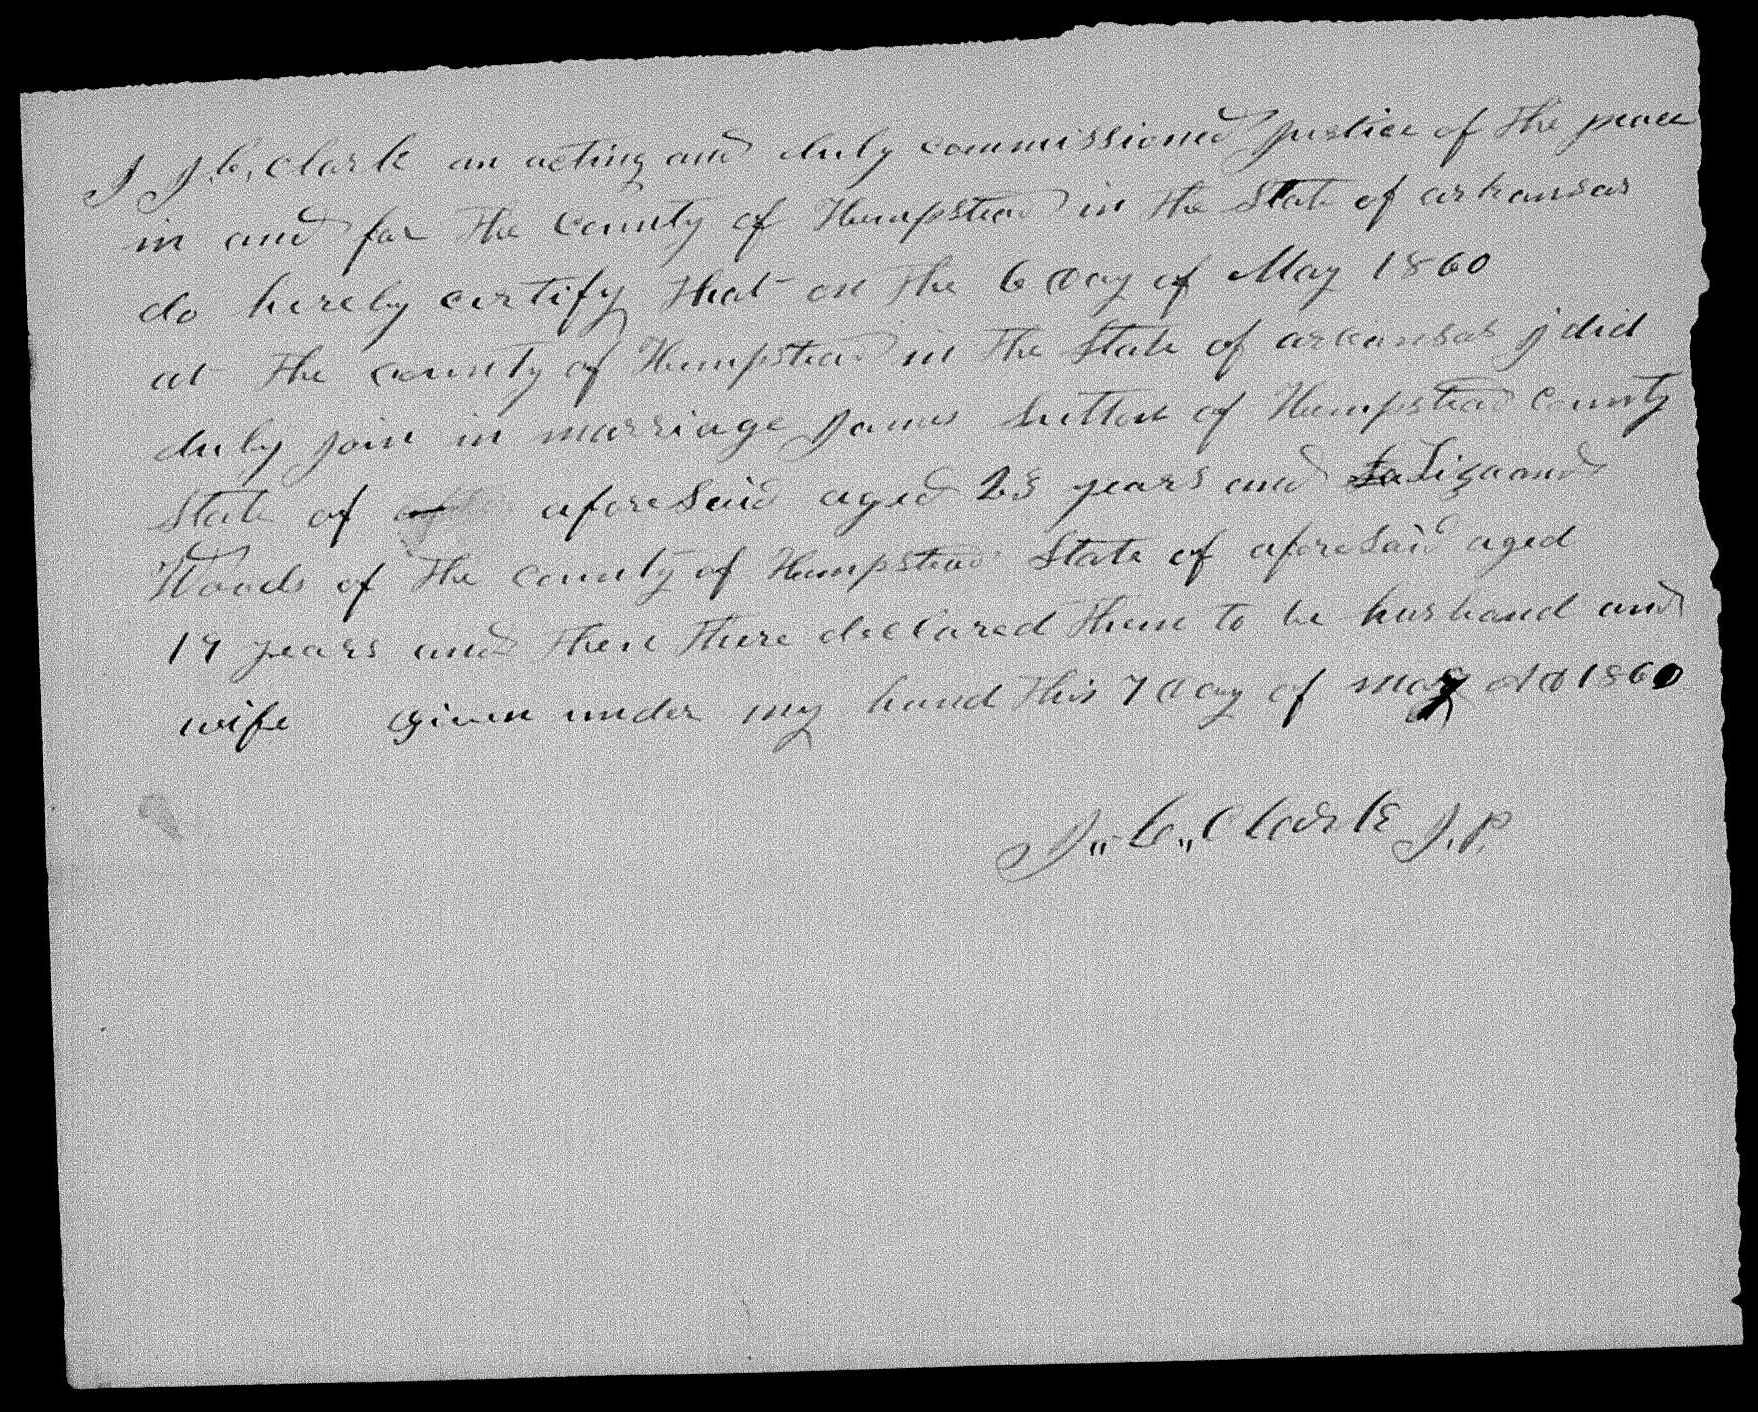 I J. C. Clark an acting and duly commissioned justice of the peace
in and for the county of Hempstead in the State of arkansas
do hereby certify that on the 6 day of May 1860
at the county of Hempstead in the State of arkansas j did
duly join in marriage James Sutton of Hempstead county
State of aforesaid aged 23 years and
Woods of the county of Hempstead State of aforesaid aged
years and then there declared them to be husband and
wife given under my hand this 7 day of may AD 1860
J" C" Clark J. P.